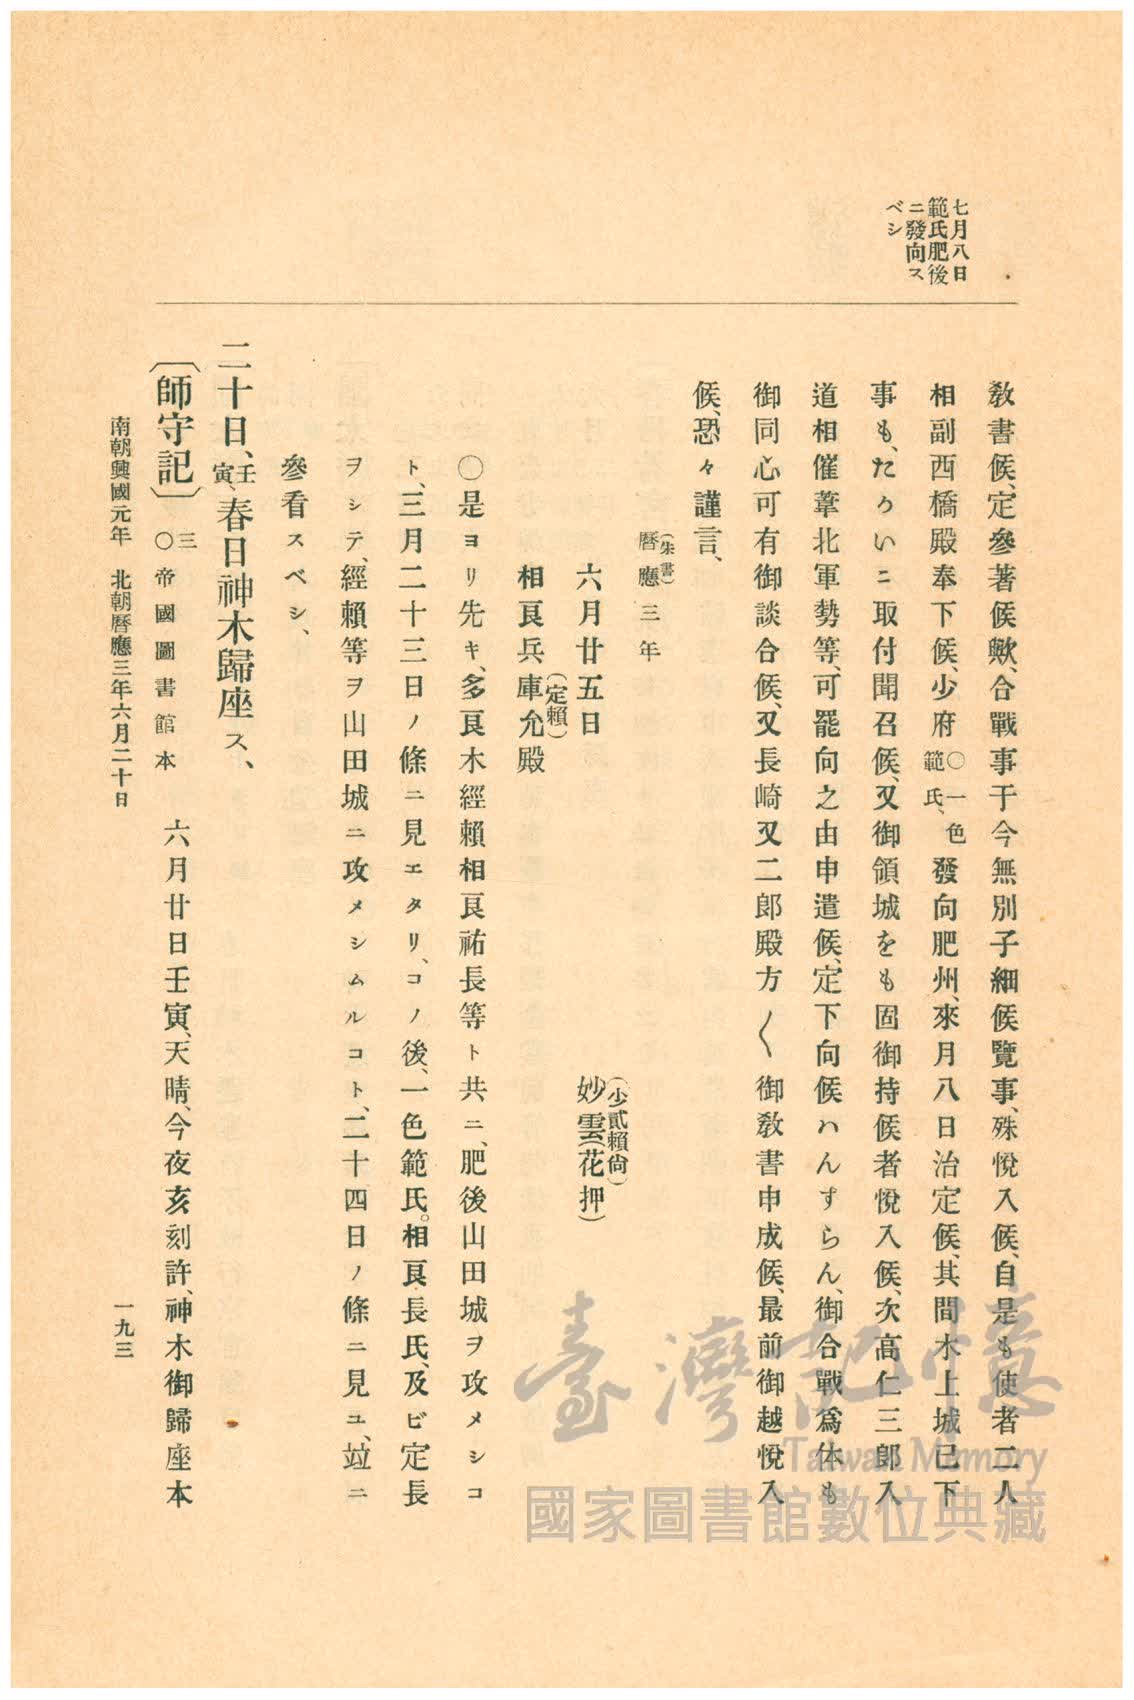 七月八日
範氏肥後
ニ發向ス
ベシ
教書候、定參著候歟、合戰事于今無別子細候覽事、殊悅入候、自是も使者二人
相副西橋殿奉下候、少府〇一色範氏、發向肥州、來月八日治定候、其間木上城已下
事も、たのいニ取付聞召候、又御領城をも固御持候者悅入候、次高仁三郎入
道相催葦北軍勢等、可罷向之由申遣候、定下向候ハんすらん、御合戰爲体も
御同心可有御談合候、又長崎又二郎殿方〱御教書申成候、最前御越悅入
候、恐々謹言、
(朱書)
曆應三年
六月廿五日
(少貳賴尙)
妙雲(花押)
相良兵庫允殿
(定賴)
〇是ヨリ先キ、多良木經賴相良祐長等ト共ニ、肥後山田城ヲ攻メシコ
ト、三月二十三日ノ條ニ見エタリ、コノ後、一色範氏。相良長氏、及ビ定長
ヲシテ、經賴等ヲ山田城ニ攻メシムルコト、二十四日ノ條ニ見ユ、竝ニ
參看スベシ、
二十日、壬寅、春日神木歸座ス、
〔師守記〕三〇帝國圖書館本 六月廿日壬寅、天晴、今夜亥刻許、神木御歸座本
南朝興國元年 北朝曆應三年六月二十日
一九三
臺灣記憶
Taiwan Memory
國家圖書館數位典藏